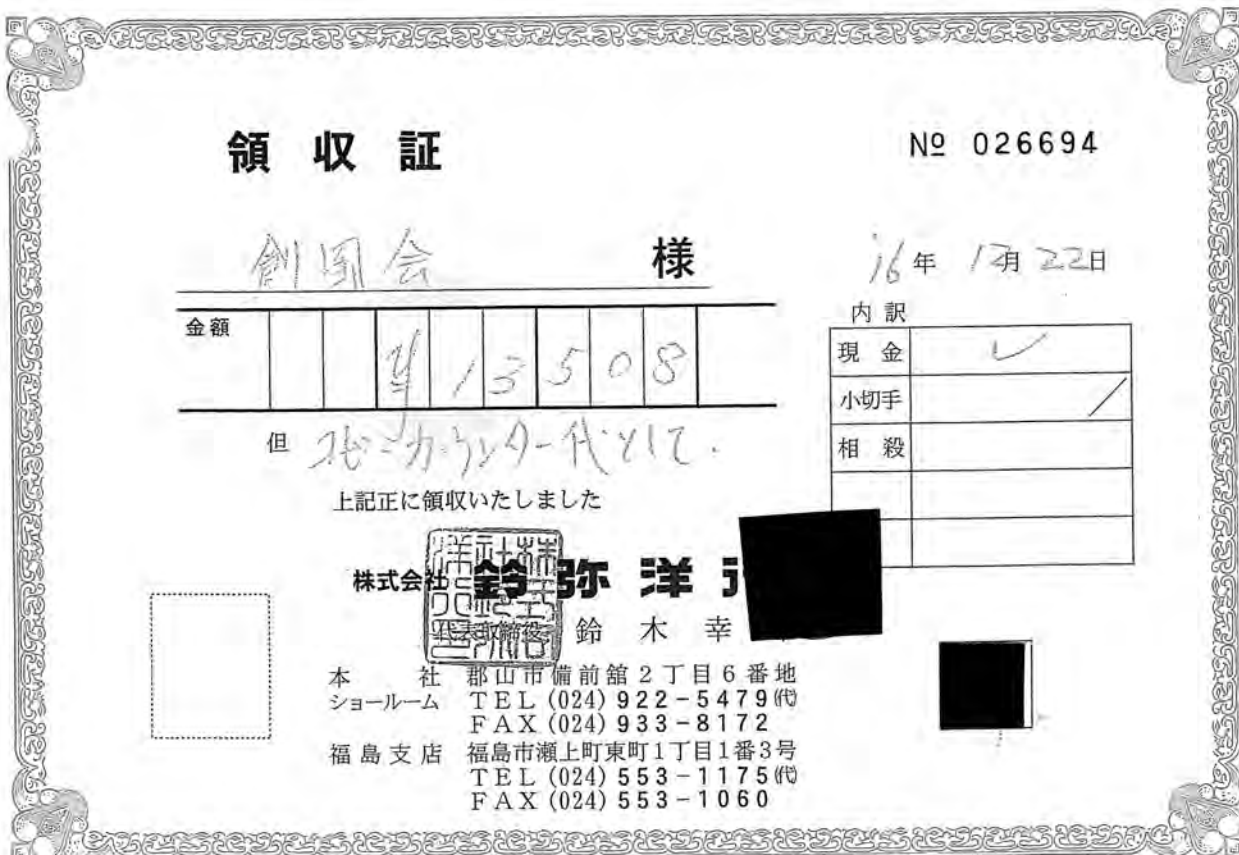 領収証
№ 026694
創風会 様
'16年 12月 22日
金額 ¥13508
内訳
現金 ✓
小切手
相殺
但 コピーカウンター代として.
上記正に領収いたしました
株式会社 鈴弥洋
代表取締役 鈴木幸
本社 郡山市備前舘2丁目6番地
ショールーム TEL (024) 922-5479㈹
FAX (024) 933-8172
福島支店 福島市瀬上町東町1丁目1番3号
TEL (024) 553-1175㈹
FAX (024) 553-1060